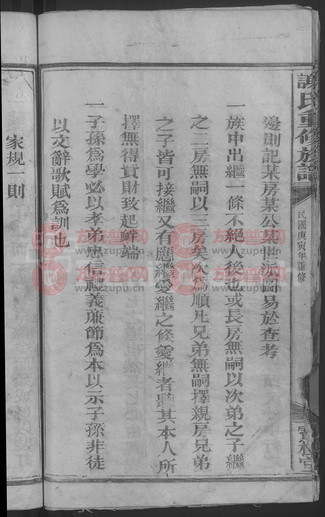 謝氏重修族譜
民國庚寅年重修
寶樹堂
邊則記某房某公某世派嗣易於查考
一族中出繼一條不絕人後也或長房無嗣以次弟之子繼
之二房無嗣以三房矣次為順凡兄弟無嗣擇親房兄弟
之子皆可接繼又有應繼愛繼之條愛繼者聽其本人所
擇無得貪財致起衅端
一子孫為學必以孝弟忠信禮義廉節為本以示子孫非徒
以文辭歌賦為訓也
家規一則
族譜網
www.zupu.cn